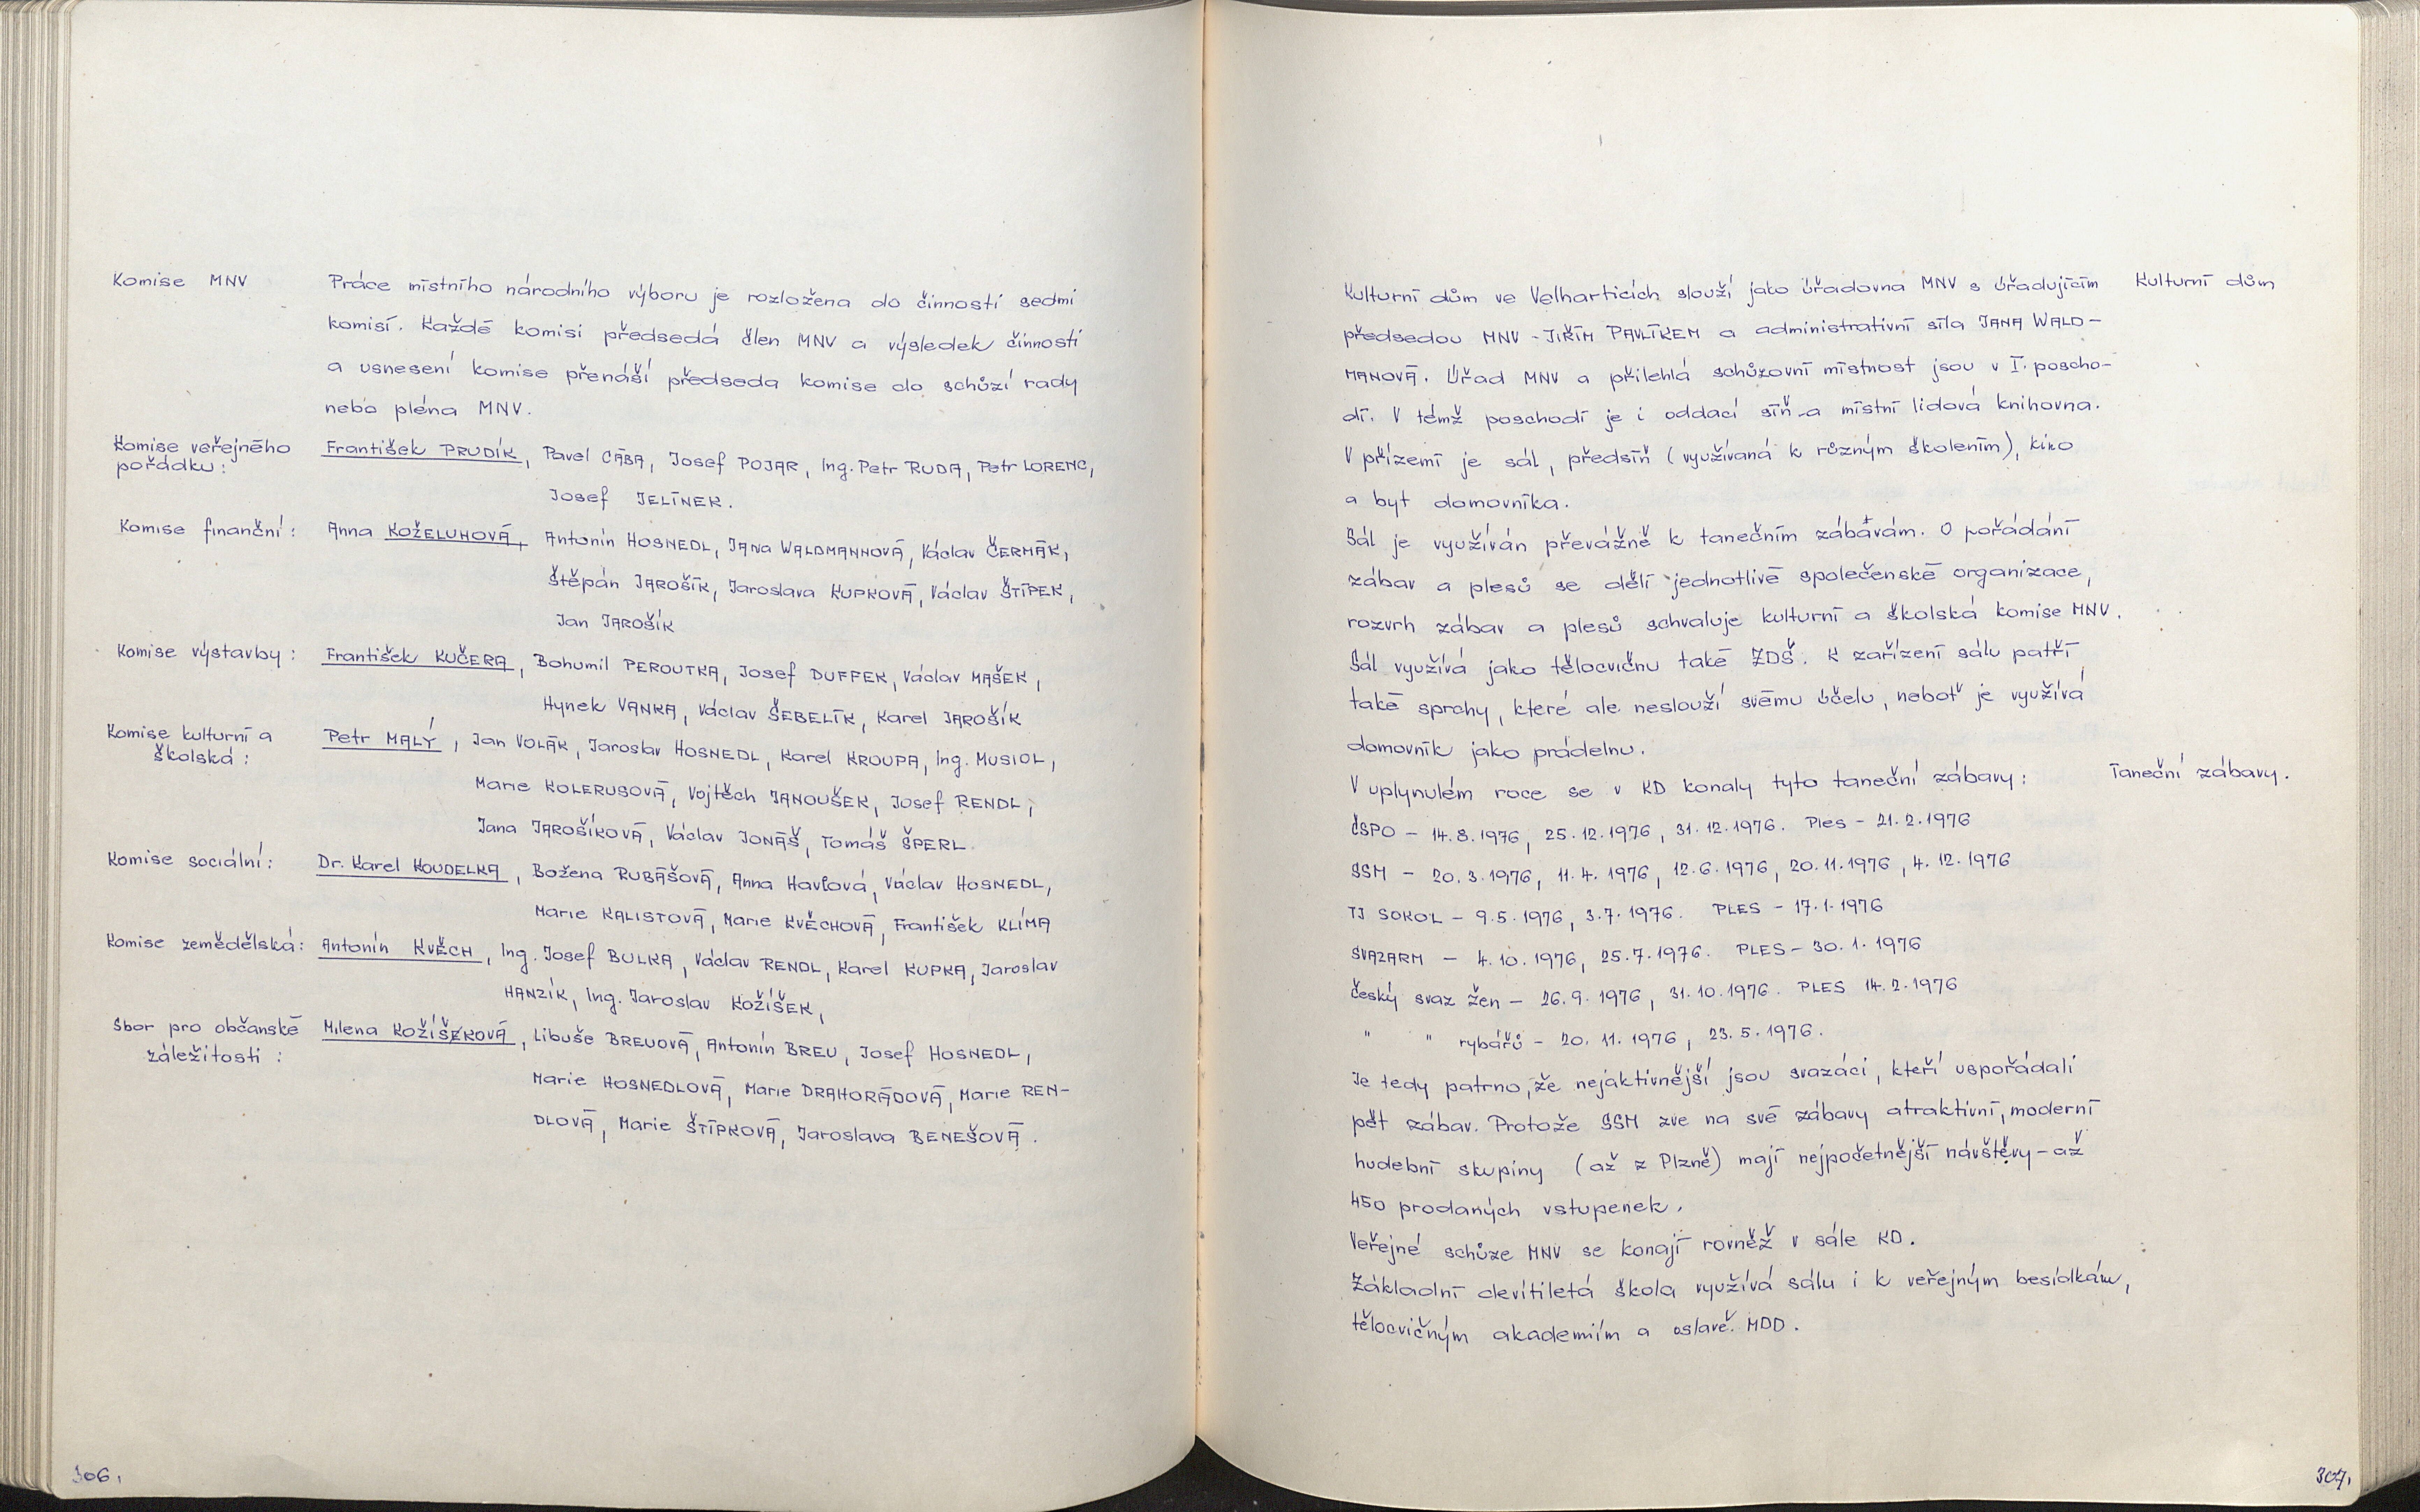 Komise MNV
Práce místního národního výboru je rozložena do činností sedmi
komisí. Každé komisi předsedá člen MNV a výsledek činnosti
a usnesení komise přenáší předseda komise do schůzí rady
nebo pléna MNV.
Komise veřejného
pořádku:
František PRUDÍK, Pavel CÁBA, Josef POJAR, Ing. Petr RUDA, Petr LORENC,
Josef JELÍNEK.
Komise finanční:
Anna KOŽELUHOVÁ, Antonín HOSNEDL, JANA WALDMANNOVÁ, Václav ČERMÁK,
Štěpán JAROŠÍK, Jaroslava KUPKOVÁ, Václav ŠTÍPEK,
Jan JAROŠÍK
Komise výstavby:
František KUČERA, Bohumil PEROUTKA, Josef DUFFEK, Václav MAŠEK,
Hynek VANKA, Václav ŠEBELÍK, Karel JAROŠÍK
Komise kulturní a
školská:
Petr MALÝ, Jan VOLÁK, Jaroslav HOSNEDL, Karel KROUPA, Ing. MUSIOL,
Marie KOLERUSOVÁ, Vojtěch JANOUŠEK, Josef RENDL,
Jana JAROŠÍKOVÁ, Václav JONÁŠ, Tomáš ŠPERL.
Komise sociální:
Dr. Karel KOUDELKA, Božena RUBÁŠOVÁ, Anna Havlová, Václav HOSNEDL,
Marie KALISTOVÁ, Marie KVĚCHOVÁ, František KLÍMA
Komise zemědělská:
Antonín KVĚCH, Ing. Josef BULKA, Václav RENDL, Karel KUPKA, Jaroslav
HANZÍK, Ing. Jaroslav KOŽÍŠEK,
Sbor pro občanské
záležitosti:
Milena KOŽÍŠEKOVÁ, Libuše BREUOVÁ, Antonín BREU, Josef HOSNEDL,
Marie HOSNEDLOVÁ, Marie DRAHORÁDOVÁ, Marie REN-
DLOVÁ, Marie ŠTÍPKOVÁ, Jaroslava BENEŠOVÁ.
306.
Kulturní dům ve Velharticích slouží jako úřadovna MNV s úřadujícím
Kulturní dům
předsedou MNV - JIŘÍM PAVLÍKEM a administrativní síla JANA WALD-
MANOVÁ. Úřad MNV a přilehlá schůzovní místnost jsou v I. poscho-
dí. V témž poschodí je i oddací síň a místní lidová knihovna.
V přízemí je sál, předsíň (využívaná k různým školením), kino
a byt domovníka.
Sál je využíván převážně k tanečním zábavám. O pořádání
zábav a plesů se dělí jednotlivé společenské organizace,
rozvrh zábav a plesů schvaluje kulturní a školská komise MNV.
Sál využívá jako tělocvičnu také ZDŠ. K zařízení sálu patří
také sprchy, které ale neslouží svému účelu, neboť je využívá
domovník jako prádelnu.
V uplynulém roce se v KD konaly tyto taneční zábavy:
Taneční zábavy.
ČSPO - 14.8.1976, 25.12.1976, 31.12.1976. Ples - 21.2.1976
SSM - 20.3.1976, 11.4.1976, 12.6.1976, 20.11.1976, 4.12.1976
TJ SOKOL - 9.5.1976, 3.7.1976. PLES - 17.1.1976
SVAZARM - 4.10.1976, 25.7.1976. PLES - 30.1.1976
český svaz žen - 26.9.1976, 31.10.1976. PLES 14.2.1976
" " rybářů - 20.11.1976, 23.5.1976.
Je tedy patrno, že nejaktivnější jsou svazáci, kteří uspořádali
pět zábav. Protože SSM zve na své zábavy atraktivní, moderní
hudební skupiny (až z Plzně) mají nejpočetnější návštěvy - až
450 prodaných vstupenek.
Veřejné schůze MNV se konají rovněž v sále KD.
Základní devítiletá škola využívá sálu i k veřejným besídkám,
tělocvičným akademiím a oslavě MDD.
307.